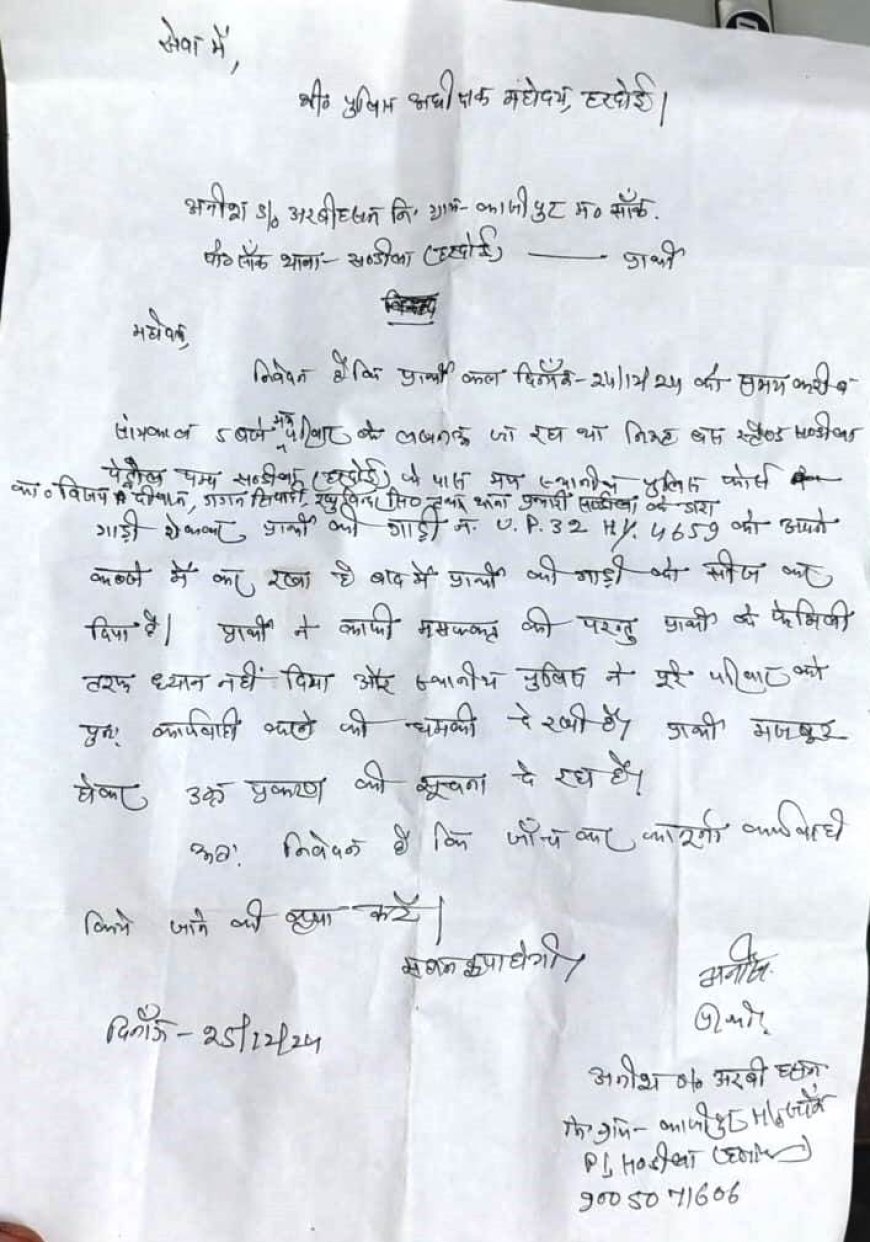 सेवा में,
श्री० पुलिस अधीक्षक महोदय, हरदोई।
अनीश S/o अरबीहसन नि. ग्राम- काजीपुर म० सॉक.
पो० सॉक थाना- सण्डीला (हरदोई) —— प्रार्थी
महोदय,
निवेदन है कि प्रार्थी कल दिनाँक- 24/12/24 को समय करीब
सांयकाल 5 बजे मय परिवार के लखनऊ जा रहा था निकट बस स्टैण्ड सण्डीला
पेट्रौल पम्प सण्डीला (हरदोई) के पास मय स्थानीय पुलिस फोर्स
का० विजय दीवान, गगन सिपाही, रघुविन्द्र सि० तथा थाना प्रभारी सण्डीला के द्वारा
गाड़ी रोककर प्रार्थी की गाड़ी नं. U.P. 32 HY. 4659 को अपने
कब्जे में कर रखा है बाद में प्रार्थी की गाड़ी को सीज कर
दिया है। प्रार्थी ने काफी मसक्कत की परन्तु प्रार्थी के फेमिली
तरफ ध्यान नहीं दिया और स्थानीय पुलिस ने पूरे परिवार को
पुनः कार्यवाही करने की धमकी दे रखी है। प्रार्थी मजबूर
होकर उक्त प्रकरण की सूचना दे रहा है।
अतः निवेदन है कि जाँच कर कानूनी कार्यवाही
किये जाने की कृपा करें।
महान कृपा होगी।
दिनाँक - 25/12/24
प्रार्थी
अनीश S/o अरबी हसन
नि. ग्राम- काजीपुर म० सॉक
PS सण्डीला (हरदोई)
9005071606